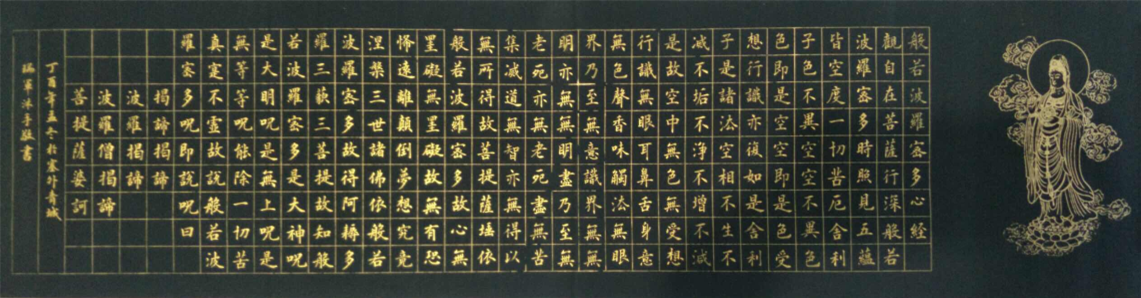 般若波羅蜜多心經
觀自在菩薩行深般若
波羅蜜多時照見五蘊
皆空度一切苦厄舍利
子色不異空空不異色
色即是空空即是色受
想行識亦復如是舍利
子是諸法空相不生不
滅不垢不淨不增不滅
是故空中無色無受想
行識無眼耳鼻舌身意
無色聲香味觸法無眼
界乃至無意識界無無
明亦無無明盡乃至無
老死亦無老死盡無苦
集滅道無智亦無得以
無所得故菩提薩埵依
般若波羅蜜多故心無
罣礙無罣礙故無有恐
怖遠離顛倒夢想究竟
涅槃三世諸佛依般若
波羅蜜多故得阿耨多
羅三藐三菩提故知般
若波羅蜜多是大神呪
是大明呪是無上呪是
無等等呪能除一切苦
真實不虛故說般若波
羅蜜多呪即說呪曰
揭諦揭諦
波羅揭諦
波羅僧揭諦
菩提薩婆訶
丁酉年孟冬於塞外青城
軍沐手敬書